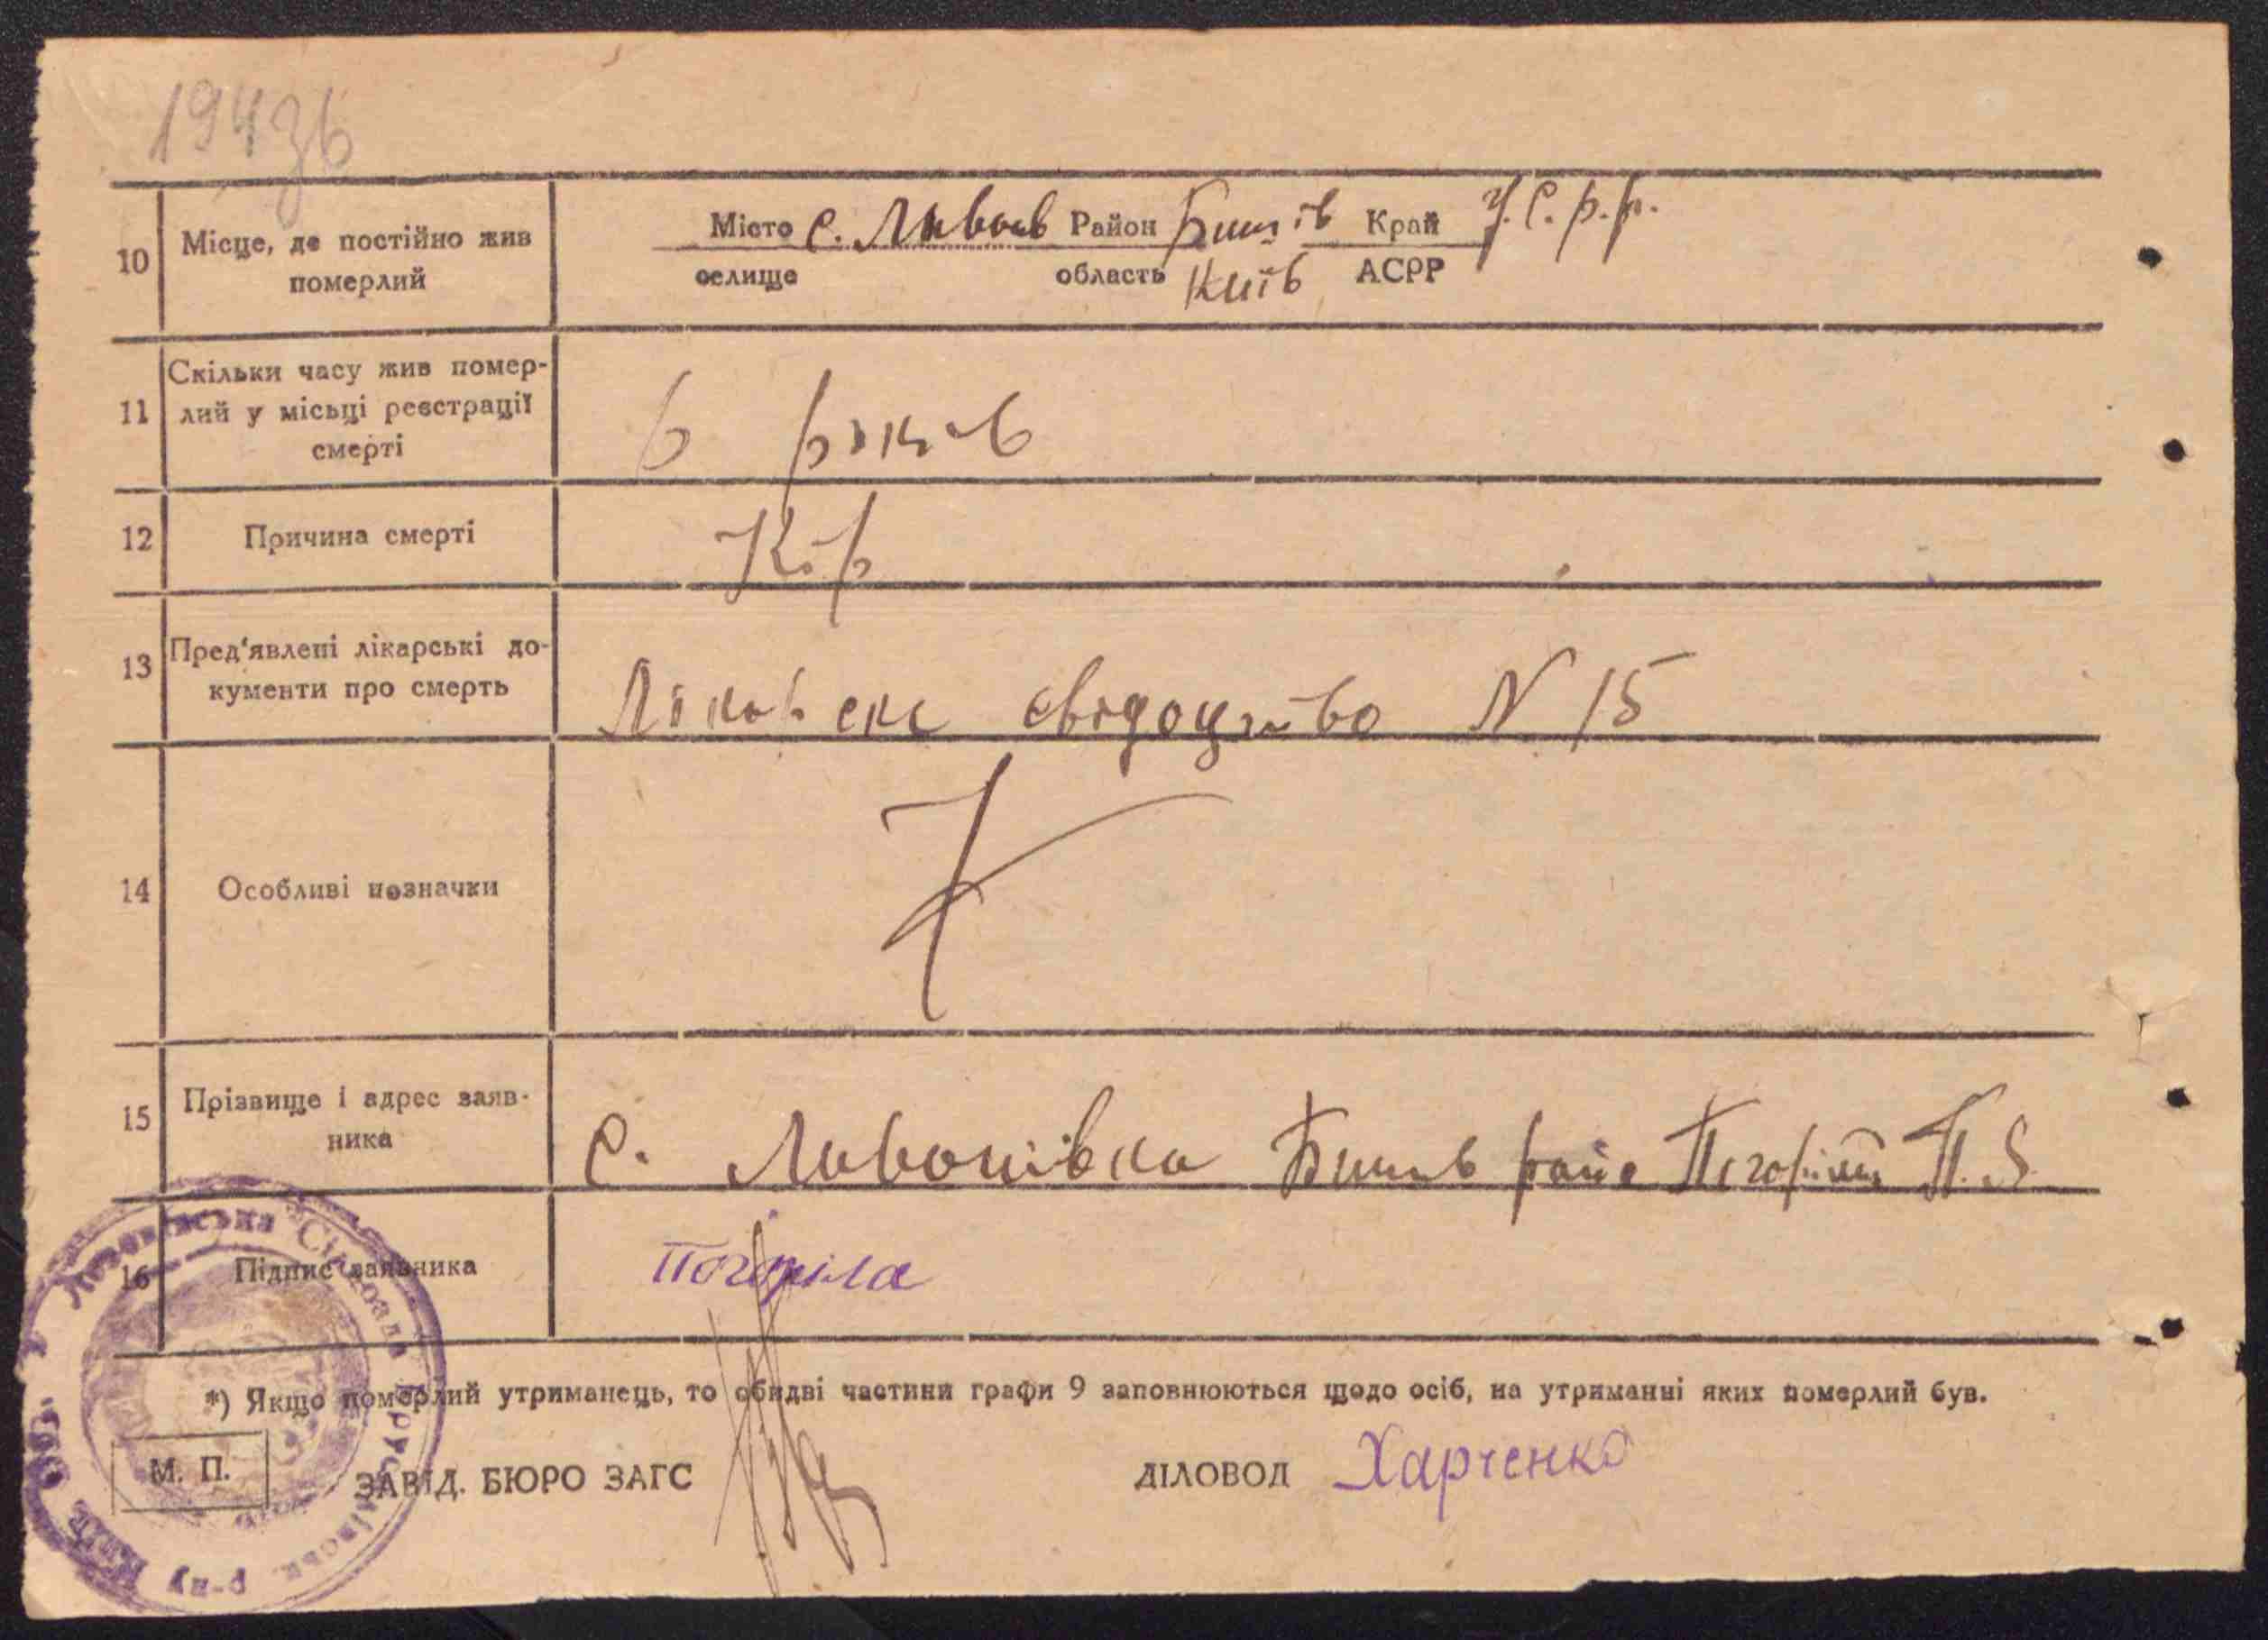 10 Місце, де постійно жив померлий
Місто с. Район Бишів Край У.С.Р.Р.
селище область Київ АСРР
11 Скільки часу жив помер-
лий у місьці реєстрації
смерті
6 років
12 Причина смерті Кір
13 Пред'явлені лікарські до-
кументи про смерть
свідоцтво N 15
14 Особливі позначки
15 Прізвище і адрес заяв-
ника
с. Лубонівка Бишів П.
16 Підпис заявника Погоріла
*) Якщо померлий утриманець, то обидві частини графи 9 заповнюються щодо осіб, на утриманні яких померлий був.
М. П. ЗАВІД. БЮРО ЗАГС ДІЛОВОД Харченко